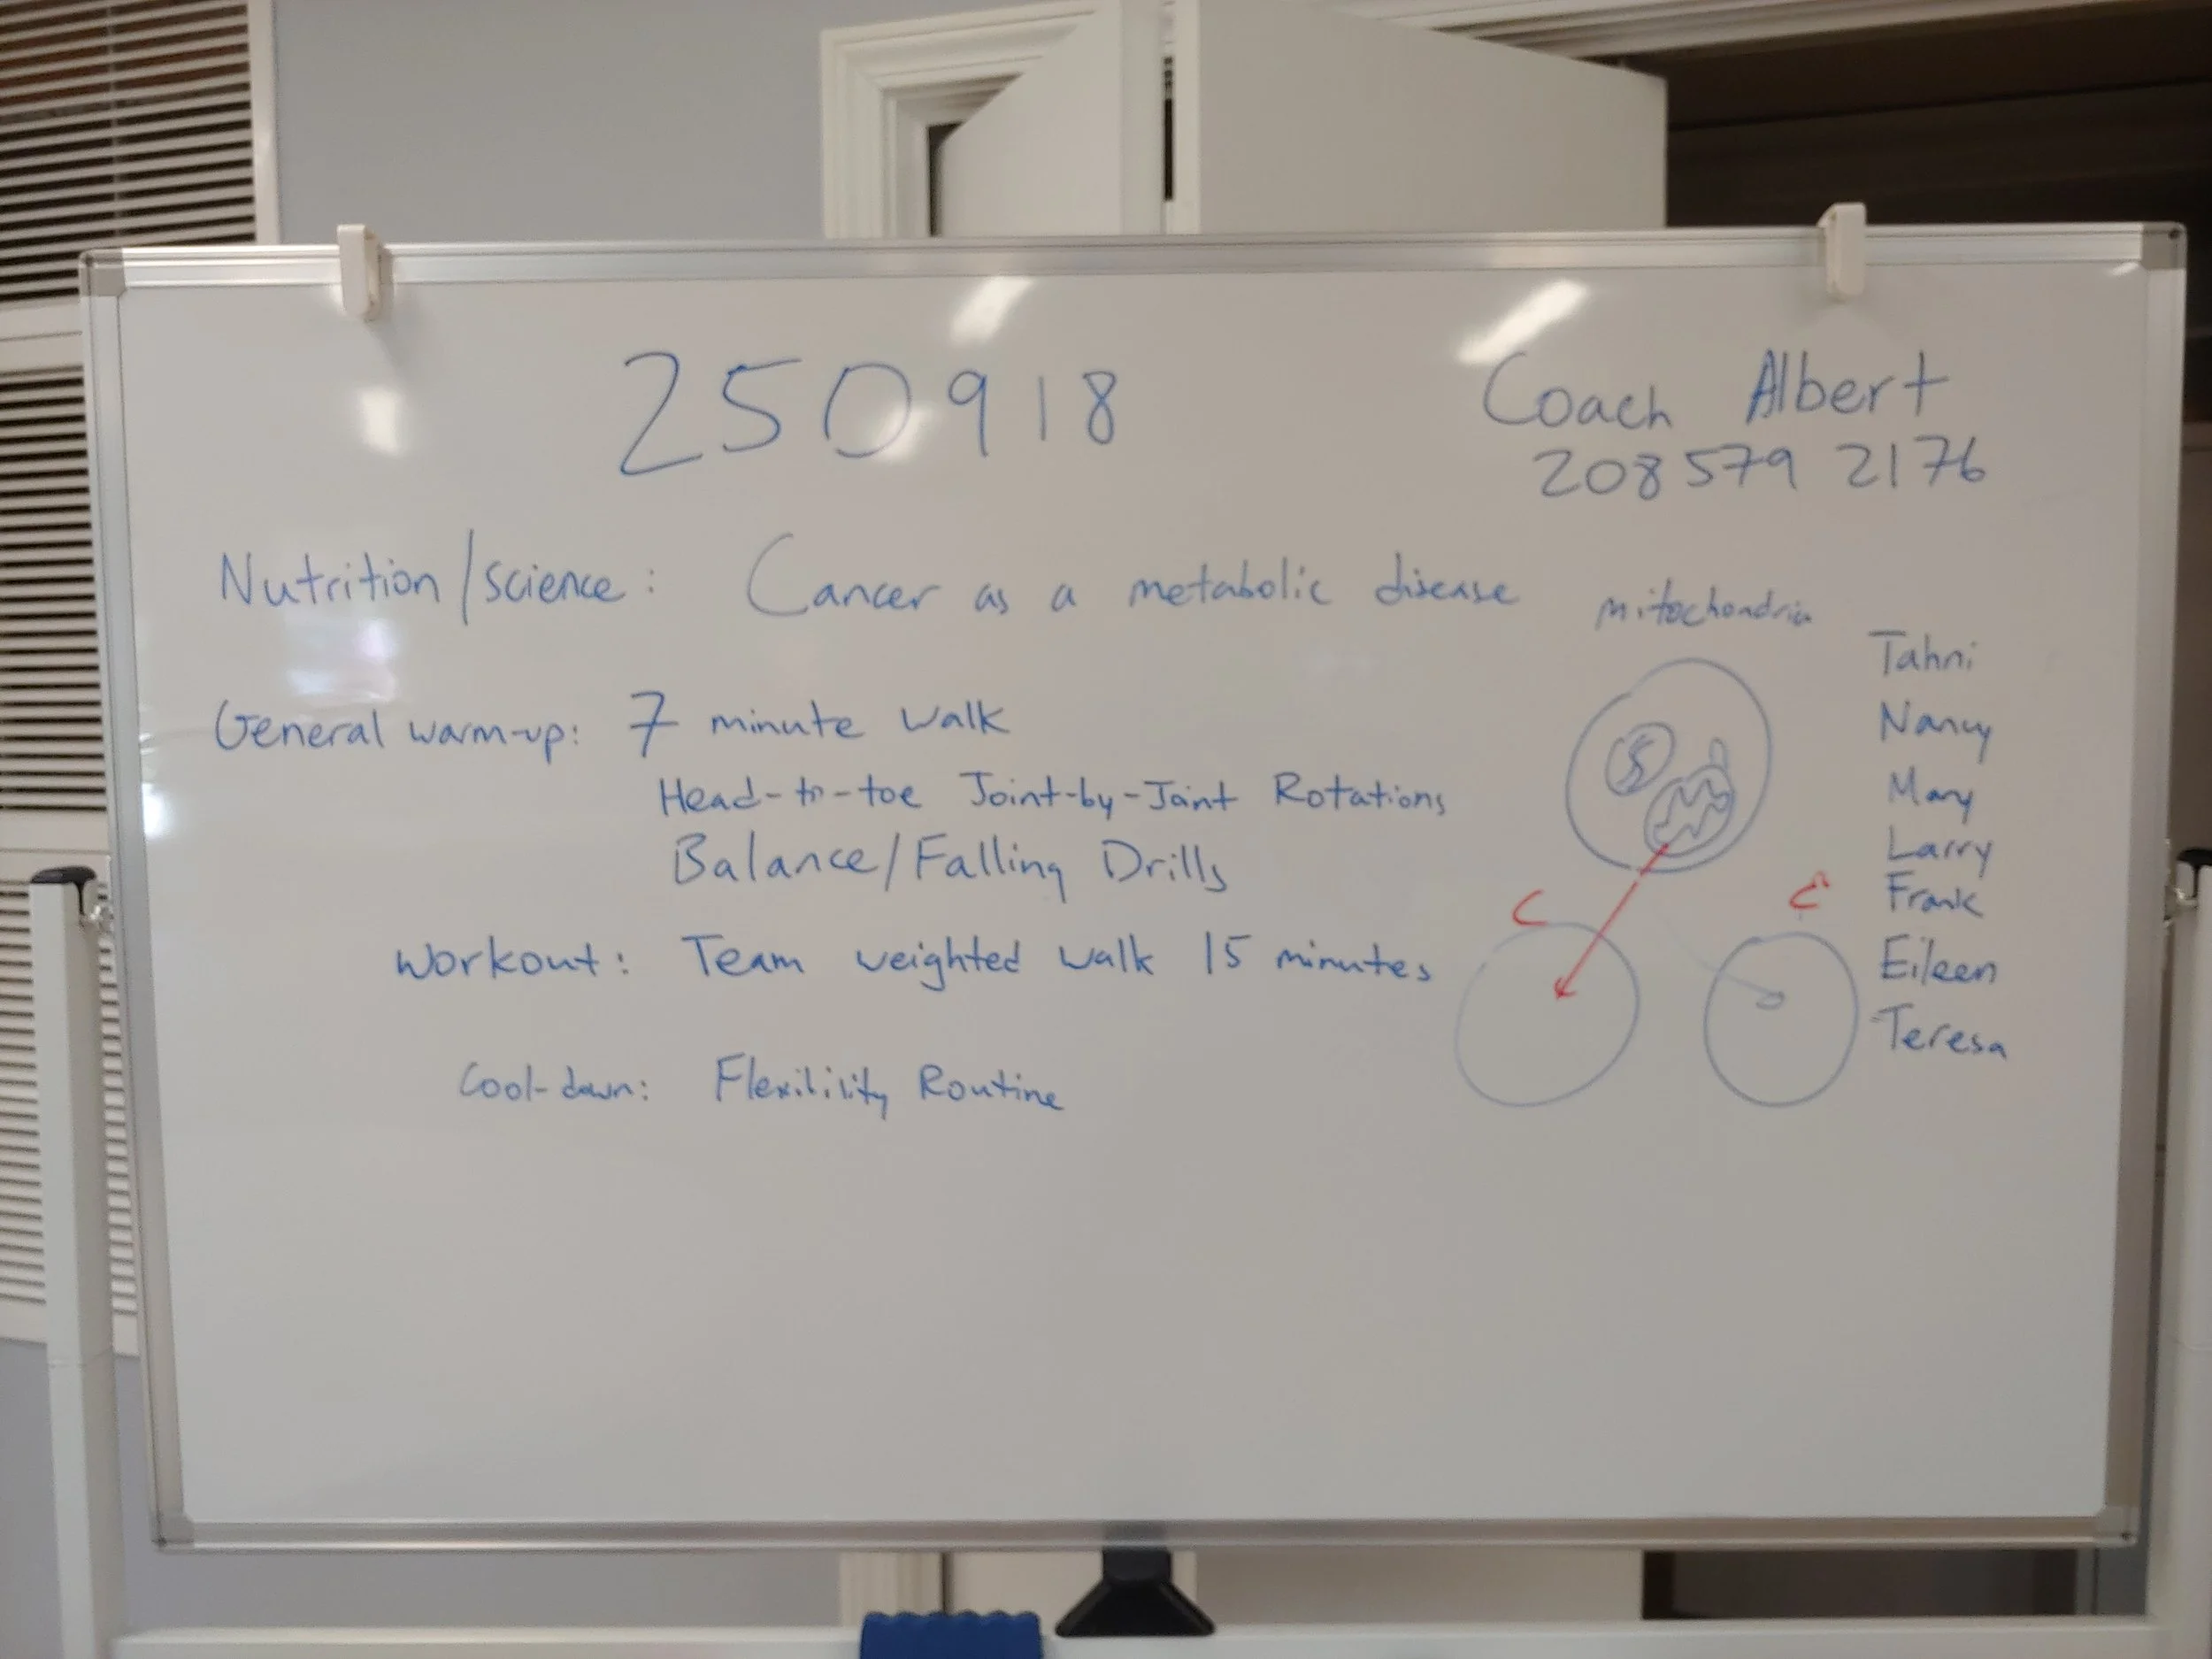 250918
Coach Albert
208 579 2176
Nutrition/science: Cancer as a metabolic disease
mitochondria
General warm-up: 7 minute walk
Head-to-toe Joint-by-Joint Rotations
Balance/Falling Drills
Workout: Team weighted walk 15 minutes
Cool-down: Flexilility Routine
Tahni
Nancy
Mary
Larry
Frank
Eileen
Teresa
C